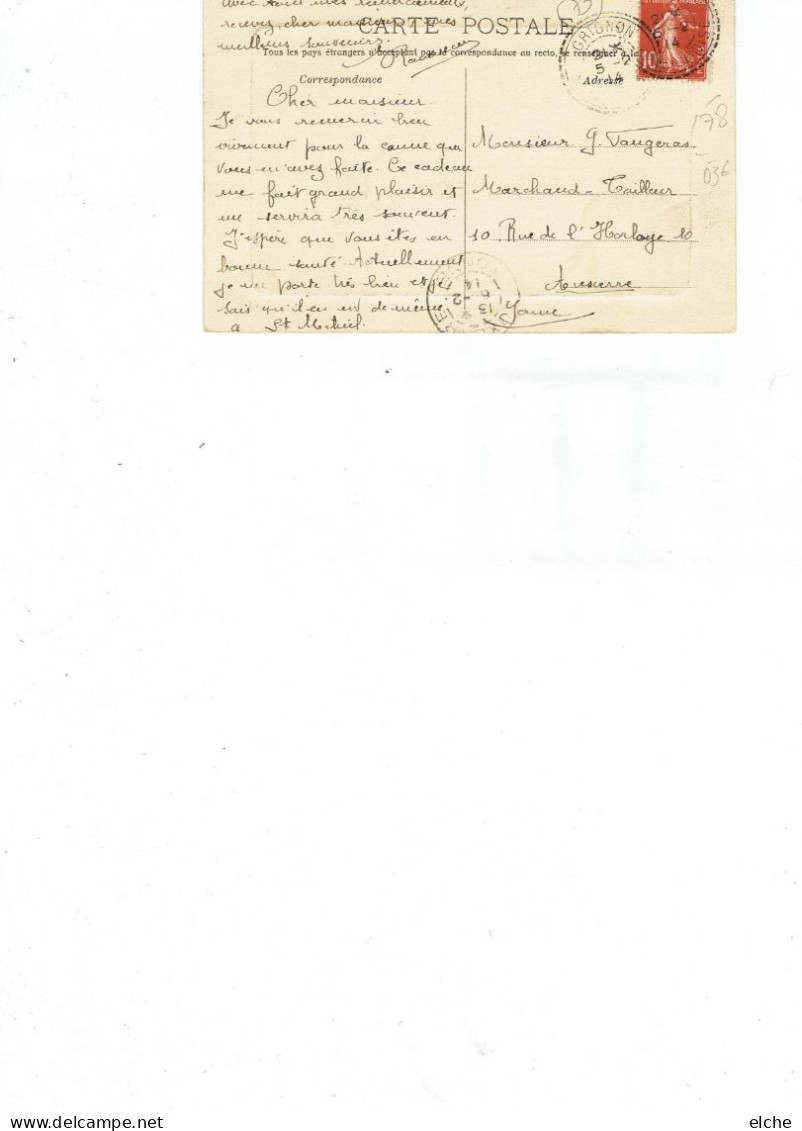 avec tous mes remerciements,
recevez, cher monsieur, mes
meilleurs souvenirs.
CARTE POSTALE
Tous les pays étrangers n'acceptent pas la correspondance au recto, se renseigner à la
Correspondance
Adresse
GRIGNON
5
14
10
178
036
Cher monsieur.
Je vous remercie bien
vivement pour la canne que
vous m'avez faite. Ce cadeau
me fait grand plaisir et
me servira très souvent.
J'espère que vous êtes en
bonne santé. Actuellement
je me porte très bien et je
sais qu'il en est de même
à St Mihiel.
Monsieur G. Vaugeras
Marchand-Tailleur
10 Rue de l'Horloge 10
Auxerre
Yonne
elche